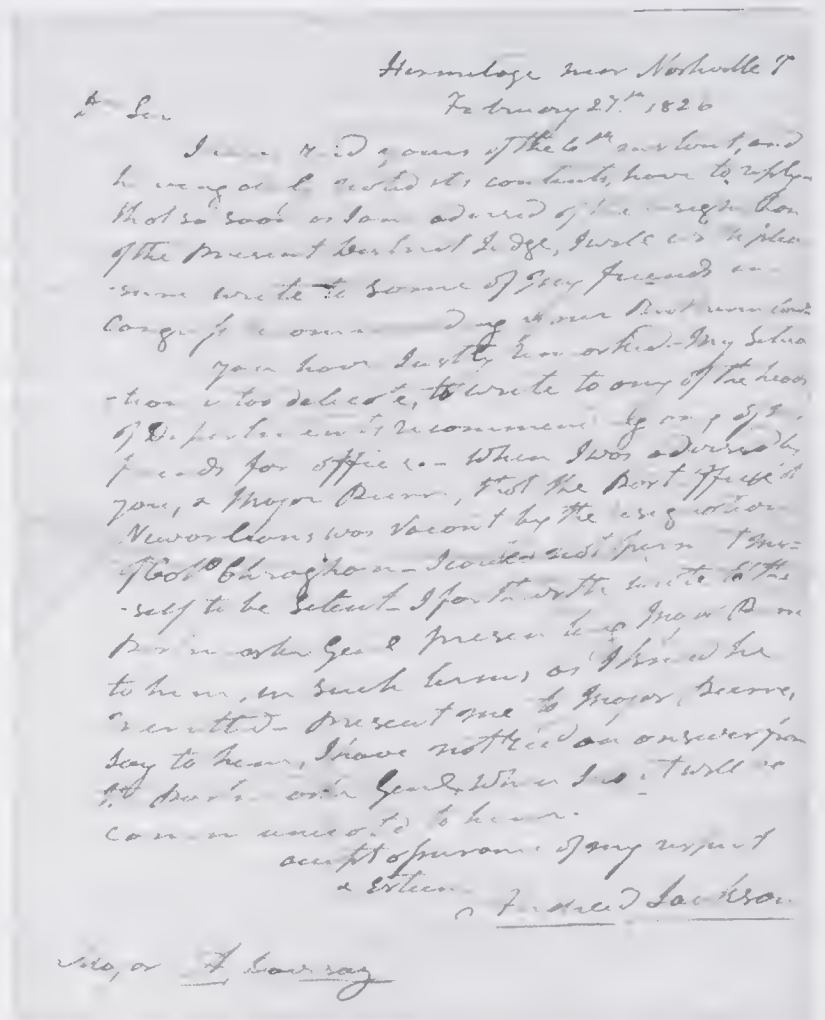 Hermitage near Nashville T
February 27th. 1826
Dr Sir
I have recd yours of the 6th instant, and
having noted its contents, have to reply
that so soon as I am advised of the resignation
of the present District Judge, I will with plea
-sure write to some of my friends in
Congress recommending
you have Justly Remarked My Situa
-tion is too delicate, to write to any of the heads
of Departments recommending any of my
friends for office.- When I was advised by
you, & Major that the Post office at
Neworleans was Vacant by the resignation
of Colo Croghan - I could not permit my-
-self to be Silent - I forthwith wrote to the
Genl presenting Major
to him, in such terms as I know he
merritted - present me to Major
say to him, I have not recd an answer from
Genl, When I do it will be
communicated to him.
accept assurance of my respect
& Esteem
Andrew Jackson